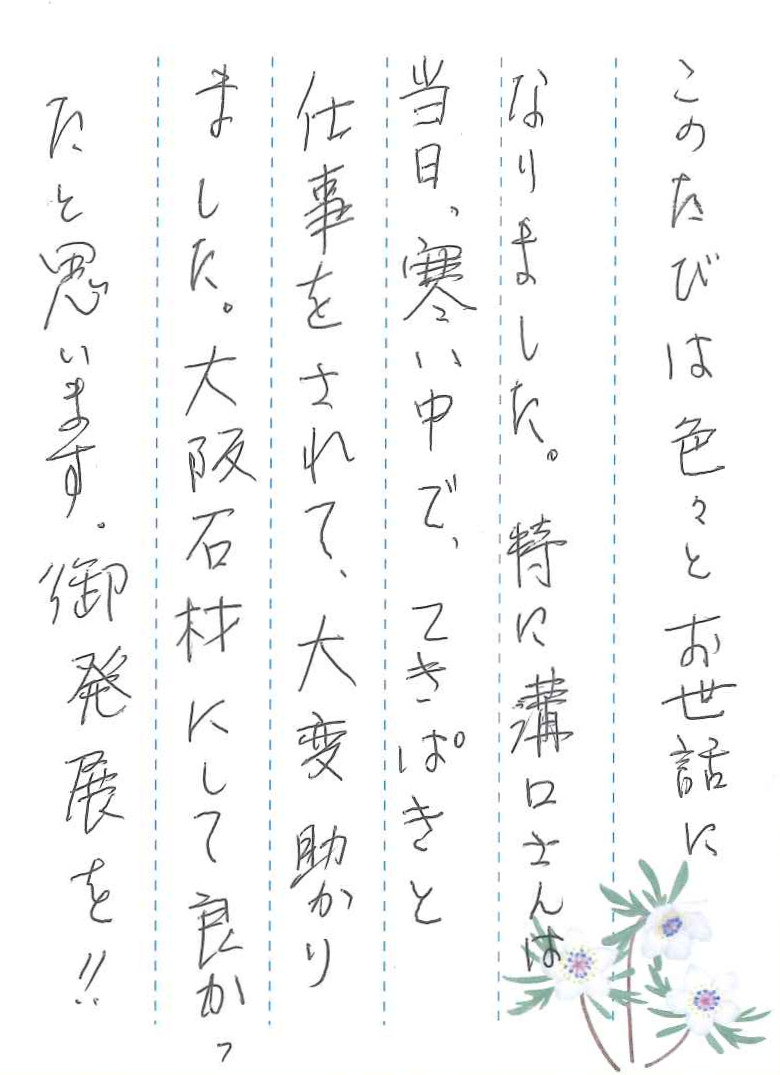 このたびは色々とお世話に
なりました。特に溝口さんは
当日、寒い中で、てきぱきと
仕事をされて、大変助かり
ました。大阪石材にして良かっ
たと思います。御発展を!!